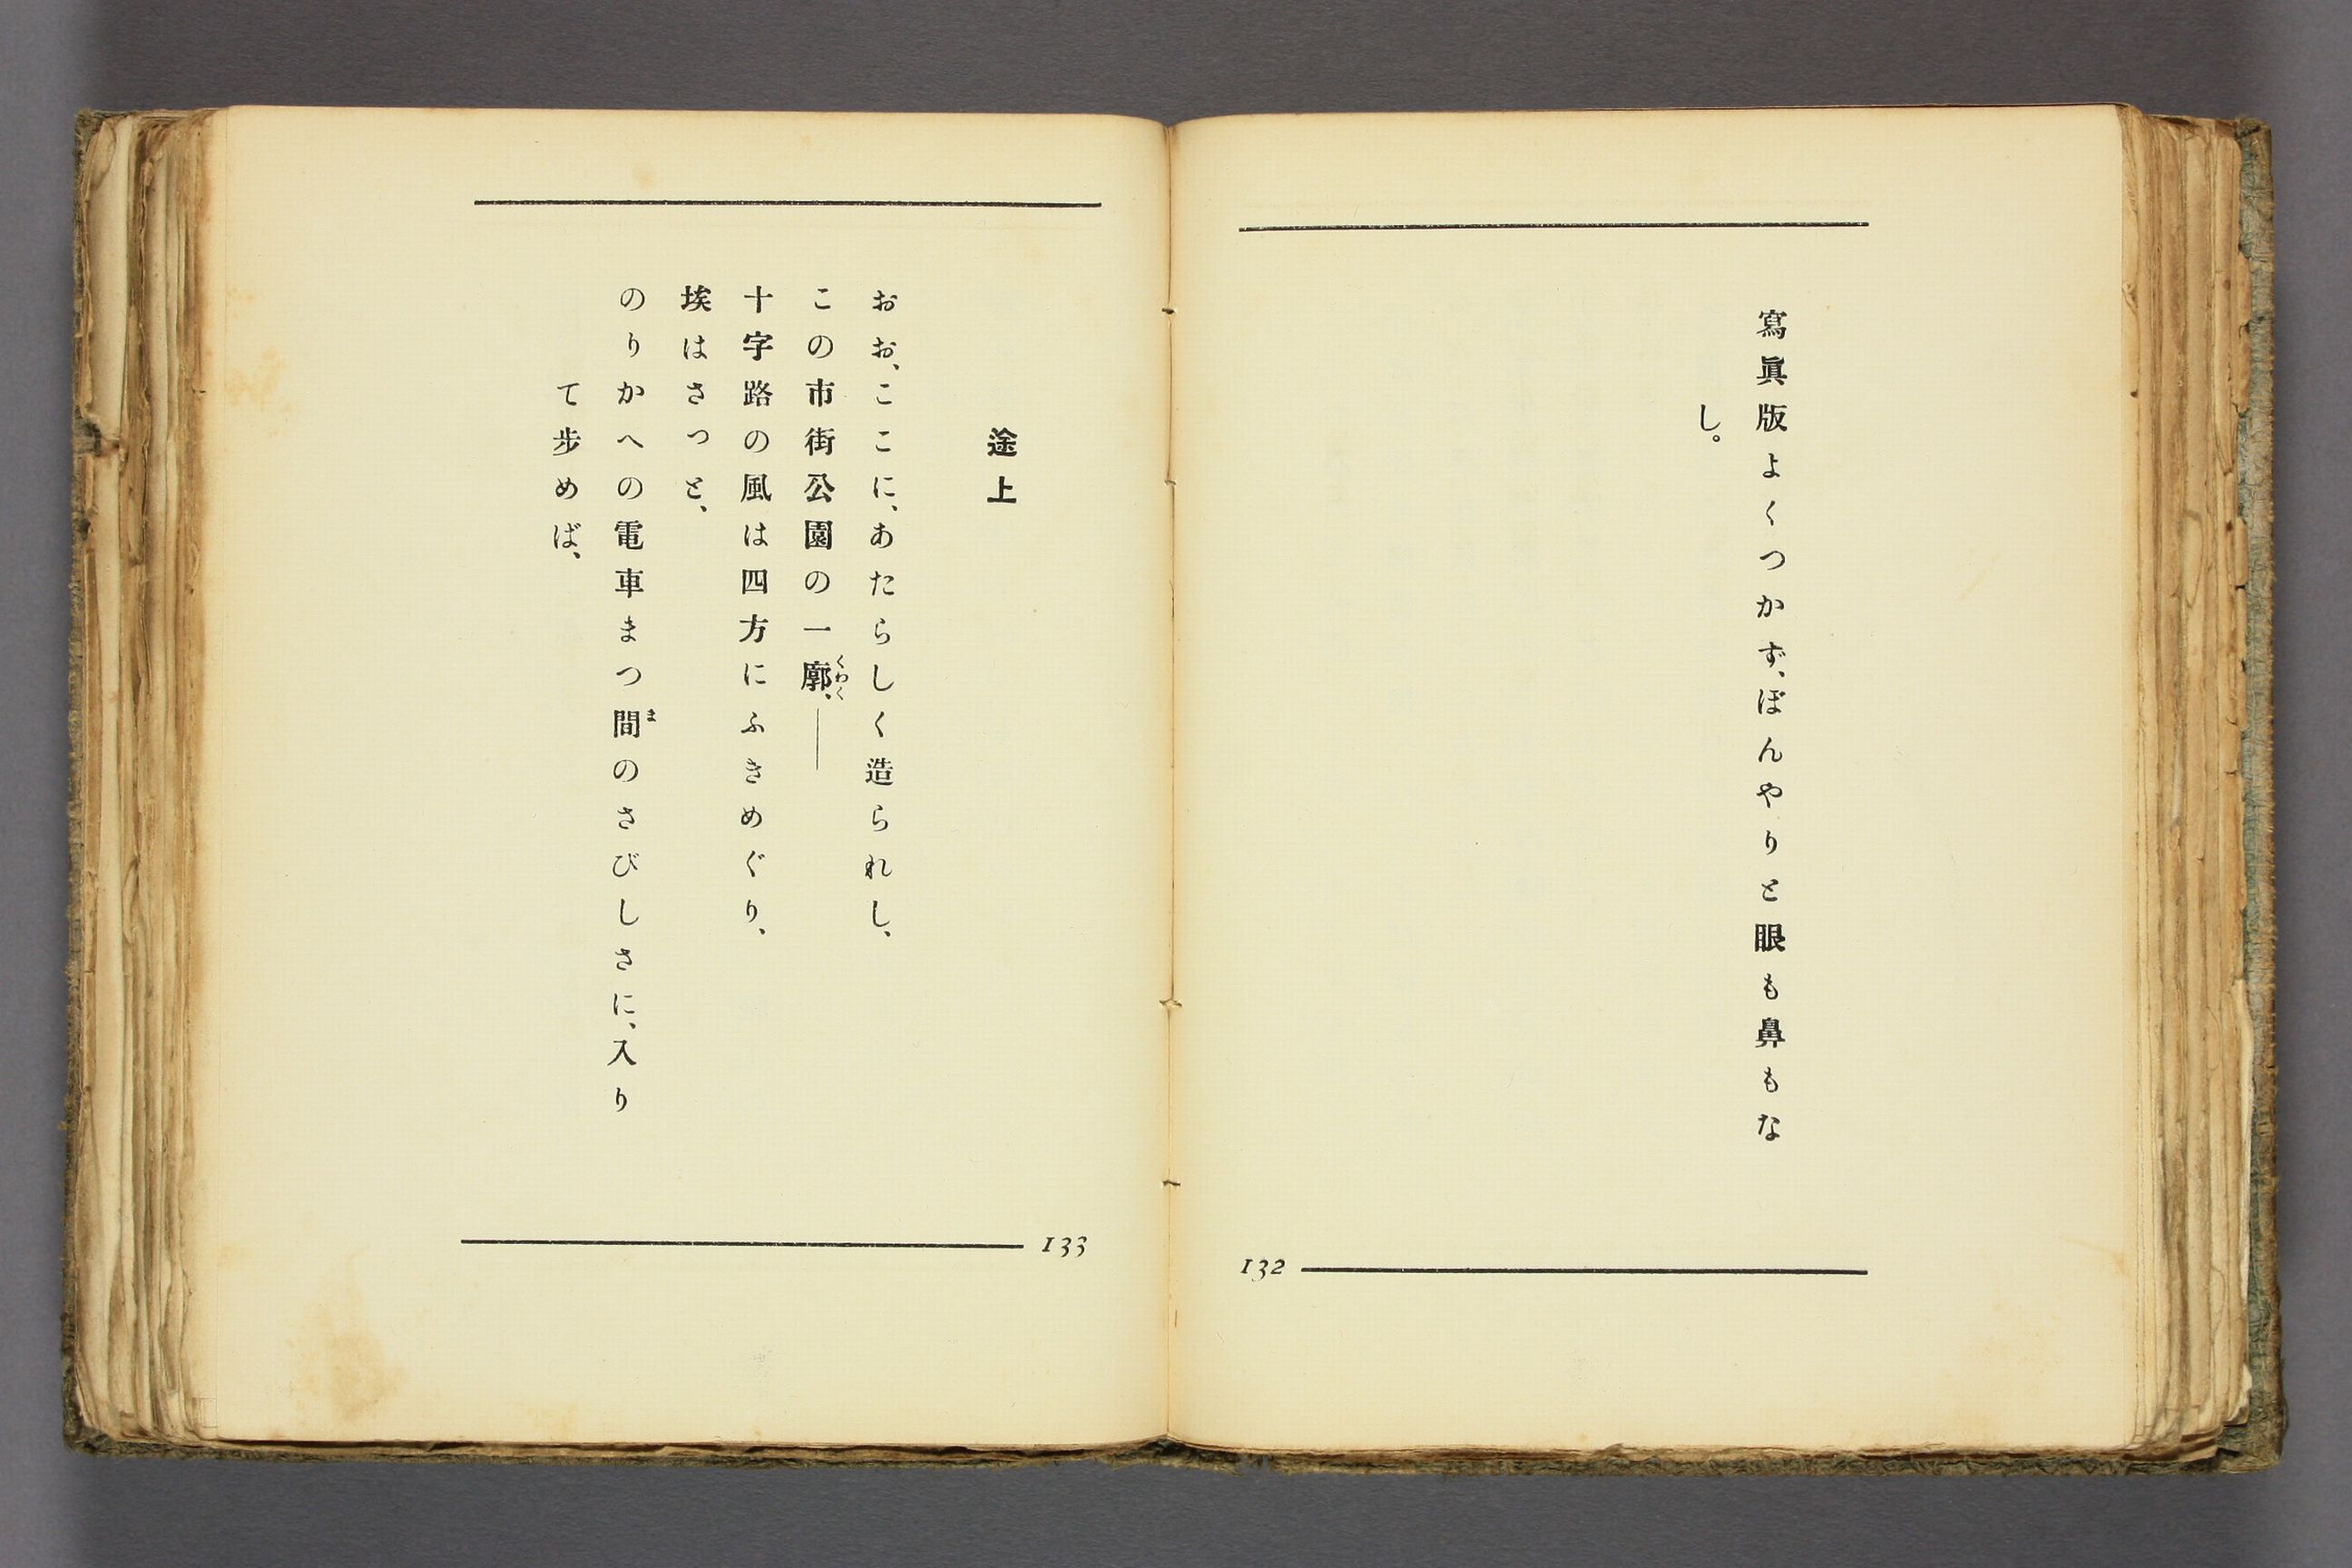 寫眞版よくつかず、ぼんやりと眼も鼻もな
し。
132
途上
おお、ここに、あたらしく造られし、
この市街公園の一廓、――
くわく
十字路の風は四方にふきめぐり、
埃はさつと、
のりかへの電車まつ間のさびしさに、入り
ま
て步めば、
133